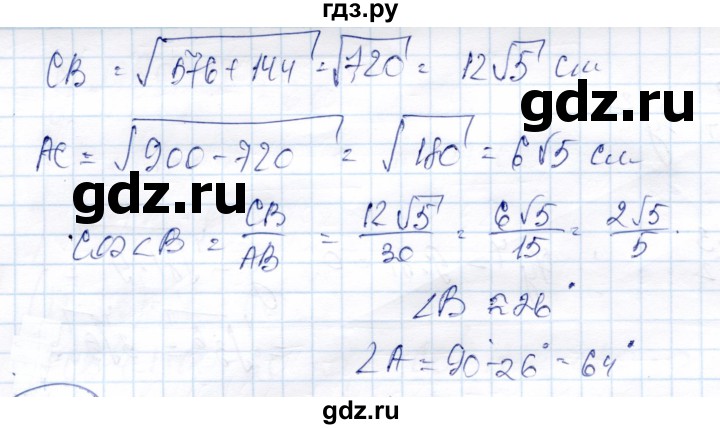 гдз.ру
CB = √576+144 = √720 = 12√5 см
gdz.ru
AC = √900-720 = √180 = 6√5 см
gdz.ru
cos∠B = CB/AB = 12√5/30 = 6√5/15 = 2√5/5.
∠B ≈ 26°
∠A = 90°-26° = 64°
gdz.ru